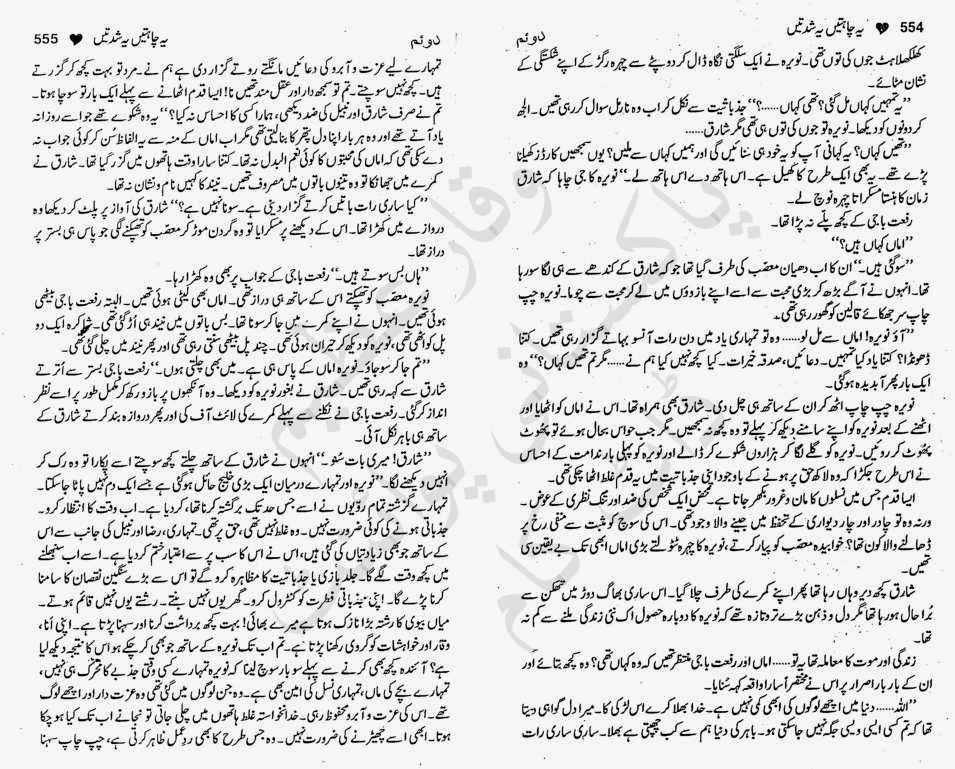 554 یہ چاہتیں یہ شدتیں دوئم
کھلکھلاہٹ جوں کی توں تھی۔ نویرہ نے ایک سلگتی نگاہ ڈال کر دوپٹے سے چہرہ رگڑ کے اپنے شکستگی کے
نشان مٹائے۔
”یہ تمہیں کہاں مل گئی؟ تھی کہاں......؟“ جذباتیت سے نکل کر اب وہ نارمل سوال کر رہی تھیں۔ الجھ
کر دونوں کو دیکھا۔ نویرہ تو جوں کی توں ہی تھی مگر شارق......
”تھیں کہاں؟ یہ کہانی آپ کو یہ خود ہی سنائیں گی اور ہمیں کہاں سے ملیں؟ یوں سمجھیں کارڈز کھیلنا
پڑے تھے۔ یہ بھی ایک طرح کا کھیل ہے۔ اس ہاتھ دے اس ہاتھ لے۔“ نویرہ کا جی چاہا کہ شارق
زمان کا ہنستا مسکراتا چہرہ نوچ لے۔
رفعت باجی کے کچھ پلے نہ پڑا تھا۔
”اماں کہاں ہیں؟“
”سو گئی ہیں۔“ ان کا اب دھیان معضب کی طرف گیا تھا جو کہ شارق کے کندھے سے ہی لگا سو رہا
تھا۔ انہوں نے آگے بڑھ کر بڑی محبت سے اسے اپنے بازوؤں میں لے کر محبت سے چوما۔ نویرہ چپ
چاپ سر جھکائے قالین کو گھور رہی تھی۔
”آؤ نویرہ! اماں سے مل لو...... وہ تو تمہاری یاد میں دن رات آنسو بہاتے گزار رہی تھیں۔ کتنا
ڈھونڈا؟ کتنا یاد کیا تمہیں۔ دعائیں، صدقہ خیرات۔ کیا کچھ نہیں کیا ہم نے...... مگر تم تھیں کہاں؟“ وہ
ایک بار پھر آبدیدہ ہو گئی۔
نویرہ چپ چاپ اٹھ کر ان کے ساتھ ہی چل دی۔ شارق بھی ہمراہ تھا۔ اس نے اماں کو اٹھایا اور
اٹھنے کے بعد نویرہ کو اپنے سامنے دیکھ کر پہلے تو وہ کچھ نہ سمجھیں۔ مگر جب حواس بحال ہوئے تو پھوٹ
پھوٹ کر روئیں۔ نویرہ کو گلے لگا کر ہزاروں شکوے کر ڈالے اور نویرہ کو پہلی بار ندامت کے احساس
نے اس طرح جکڑا کہ وہ لاکھ حق پر ہونے کے باوجود اپنی جذباتیت میں یہ قدم غلط اٹھا چکی تھی۔
ایسا قدم جس میں نسلوں کا مان و غرور بکھر جاتا ہے۔ محض ایک شخص کی ضد اور تنگ نظری کے عوض۔
ورنہ وہ تو چادر اور چار دیواری کے تحفظ میں جینے والا وجود تھی۔ اس کی سوچ کو مثبت سے منفی رخ پر
ڈھالنے والا کون تھا؟ خوابیدہ معضب کو پیار کرتے، نویرہ کا چہرہ ٹٹولتے بڑی اماں ابھی تک بے یقین سی
تھیں۔
شارق کچھ دیر وہاں رہا تھا پھر اپنے کمرے کی طرف چلا گیا۔ اس ساری بھاگ دوڑ میں تھکن سے
برا حال ہو رہا تھا مگر دل و ذہن بڑے تر و تازہ تھے کہ نویرہ کا دوبارہ حصول اک نئی زندگی ملنے سے کم نہ
تھا۔
زندگی اور موت کا معاملہ تھا یہ تو...... اماں اور رفعت باجی منتظر تھیں کہ وہ کہاں تھی؟ وہ کچھ بتائے اور
ان کے بار بار اصرار پر اس نے مختصراً سارا واقعہ کہہ سُنایا۔
”اللہ...... دنیا میں اچھے لوگوں کی ابھی کمی نہیں ہے۔ خدا بھلا کرے اس لڑکی کا۔ میرا دل گواہی دیتا
تھا کہ تم کسی ایسی ویسی جگہ نہیں جا سکتی ہو۔ باہر کی دنیا ہم سے کب چھپتی ہے بھلا۔ ساری ساری رات
555 یہ چاہتیں یہ شدتیں دوئم
تمہارے لیے عزت و آبرو کی دعائیں مانگتے روتے گزار دی ہے ہم نے۔ مرد تو بہت کچھ کر گزرتے
ہیں۔ کچھ نہیں سوچتے۔ تم تو سمجھدار اور عقل مند تھیں نا! ایسا قدم اٹھانے سے پہلے ایک بار تو سوچا ہوتا۔
تم نے صرف شارق اور نبیل کی ضد دیکھی، ہمارا کسی کا احساس نہ کیا؟“ یہ وہ شکوے تھے جو اسے روزانہ
یاد آتے تھے اور وہ ہر بار اپنا دل پتھر کا بنا لیتی تھی مگر اب اماں کے منہ سے یہ الفاظ سُن کر کوئی جواب نہ
دے سکی تھی کہ اماں کی محبتوں کا کوئی نعم البدل نہ تھا۔ کتنا سارا وقت باتوں میں گزر گیا تھا۔ شارق نے
کمرے میں جھانکا تو وہ تینوں باتوں میں مصروف تھیں۔ نیند کا کہیں نام و نشان نہ تھا۔
”کیا ساری رات باتیں کرتے گزار دینی ہے۔ سونا نہیں ہے؟“ شارق کی آواز پر پلٹ کر دیکھا وہ
دروازے میں کھڑا تھا۔ اس کے دیکھنے پر مسکرایا تو وہ گردن موڑ کر معضب کو تھپکنے لگی جو پاس ہی بستر پر
دراز تھا۔
”ہاں بس سوتے ہیں۔“ رفعت باجی کے جواب پر بھی وہ کھڑا رہا۔
نویرہ معضب کو تھپکتے اس کے ساتھ ہی دراز تھی۔ اماں بھی لیٹی ہوئی تھیں۔ البتہ رفعت باجی بیٹھی
ہوئی تھیں۔ انہوں نے اپنے کمرے میں جا کر سونا تھا۔ بس باتوں میں نیند ہی اُڑ گئی تھی۔ شاکرہ ایک دو
پل کو اٹھی تھی، نویرہ کو دیکھ کر حیران ہوئی تھی۔ چند پل بیٹھی سنتی رہی تھی اور پھر نیند میں چلی گئی تھی۔
”تم جا کر سو جاؤ۔ نویرہ اماں کے پاس ہی ہے۔ میں بھی چلتی ہوں۔“ رفعت باجی بستر سے اُترتے
شارق سے کہہ رہی تھیں۔ شارق نے بغور نویرہ کو دیکھا۔ وہ آنکھوں پر بازو رکھ کر مکمل طور پر اسے نظر
انداز کر گئی۔ رفعت باجی نے نکلنے سے پہلے کمرے کی لائٹ آف کی اور پھر دروازہ بند کرتے شارق کے
ساتھ ہی باہر نکل آئی۔
”شارق! میری بات سُنو۔“ انہوں نے شارق کے ساتھ چلتے کچھ سوچتے اسے پکارا تو وہ رک کر
انہیں دیکھنے لگا۔ ”نویرہ اور تمہارے درمیان ایک بڑی خلیج حائل ہو گئی ہے جسے ایک دم نہیں پاٹا جا سکتا۔
تمہارے گزشتہ تمام روّیوں نے اسے جس حد تک برگشتہ کرنا تھا، کر دیا ہے۔ اب وقت کا انتظار کرو۔
جذباتی ہونے کی کوئی ضرورت نہیں۔ وہ غلط نہیں تھی، حق پر تھی۔ تمہاری، رضا اور نبیل کی جانب سے اس
کے ساتھ جو بھی زیادتیاں کی گئی ہیں، اس نے اس کا سب پر سے اعتبار ختم کر دیا ہے۔ اسے اب سنبھلنے
میں کچھ وقت لگے گا۔ جلد بازی یا جذباتیت کا مظاہرہ کرو گے تو اس سے بڑے سنگین نقصان کا سامنا
کرنا پڑے گا۔ اپنی جذباتی فطرت کو کنٹرول کرو۔ گھر یوں نہیں بنتے۔ رشتے یوں نہیں قائم ہوتے۔
میاں بیوی کا رشتہ بڑا نازک ہوتا ہے میرے بھائی! بہت کچھ برداشت کرنا اور سہنا پڑتا ہے۔ اپنی اَنا،
وقار اور خواہشات کو گروی رکھنا پڑتا ہے۔ تم اب تک نویرہ کے ساتھ جو بھی کر چکے ہو اس کا نتیجہ دیکھ لیا
ہے؟ آئندہ کچھ بھی کرنے سے پہلے سو بار سوچ لینا کہ نویرہ تمہارے کسی وقتی جذبے کا محرک ہی نہیں،
تمہارے بچے کی ماں، تمہاری نسل کی امین بھی ہے۔ وہ جن لوگوں میں گئی تھی وہ عزت دار اور اچھے لوگ
تھے۔ اس کی عزت و آبرو محفوظ رہی۔ خدانخواستہ غلط ہاتھوں میں چلی جاتی تو نجانے اب تک کیا ہو چکا
ہوتا۔ ابھی اسے چھیڑنے کی ضرورت نہیں۔ وہ جس طرح کا بھی ردِعمل ظاہر کرتی ہے، چپ چاپ سہنا